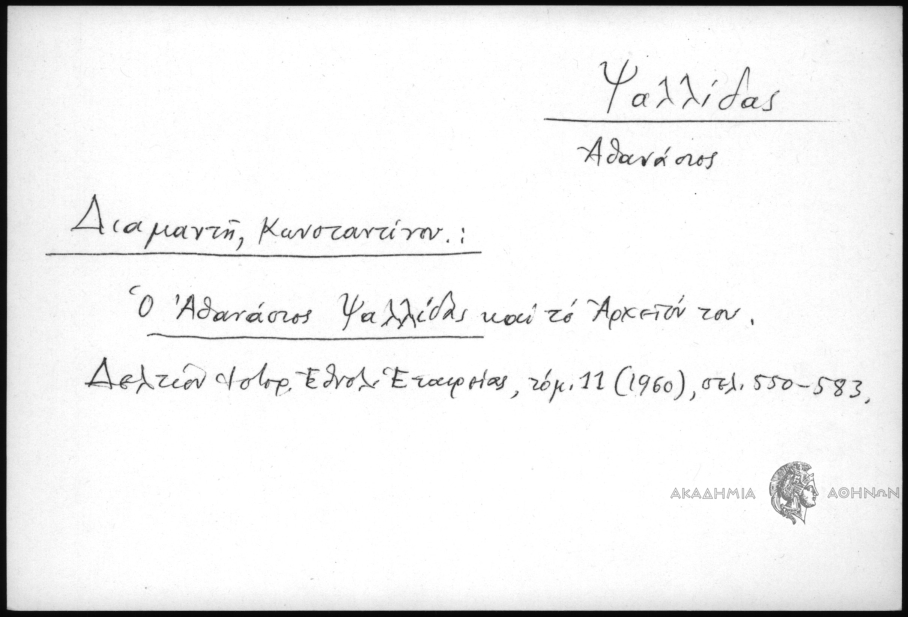 Ψαλλίδας
Ἀθανάσιος
Διαμαντῆ, Κωνσταντίνου.:
Ὁ Ἀθανάσιος Ψαλλίδας καί τό Ἀρχεῖόν του.
Δελτίον Ἱστορ. Ἐθνολ. Ἑταιρείας, τόμ. 11 (1960), σελ. 550-583.
ΑΚΑΔΗΜΙΑ ΑΘΗΝΩΝ